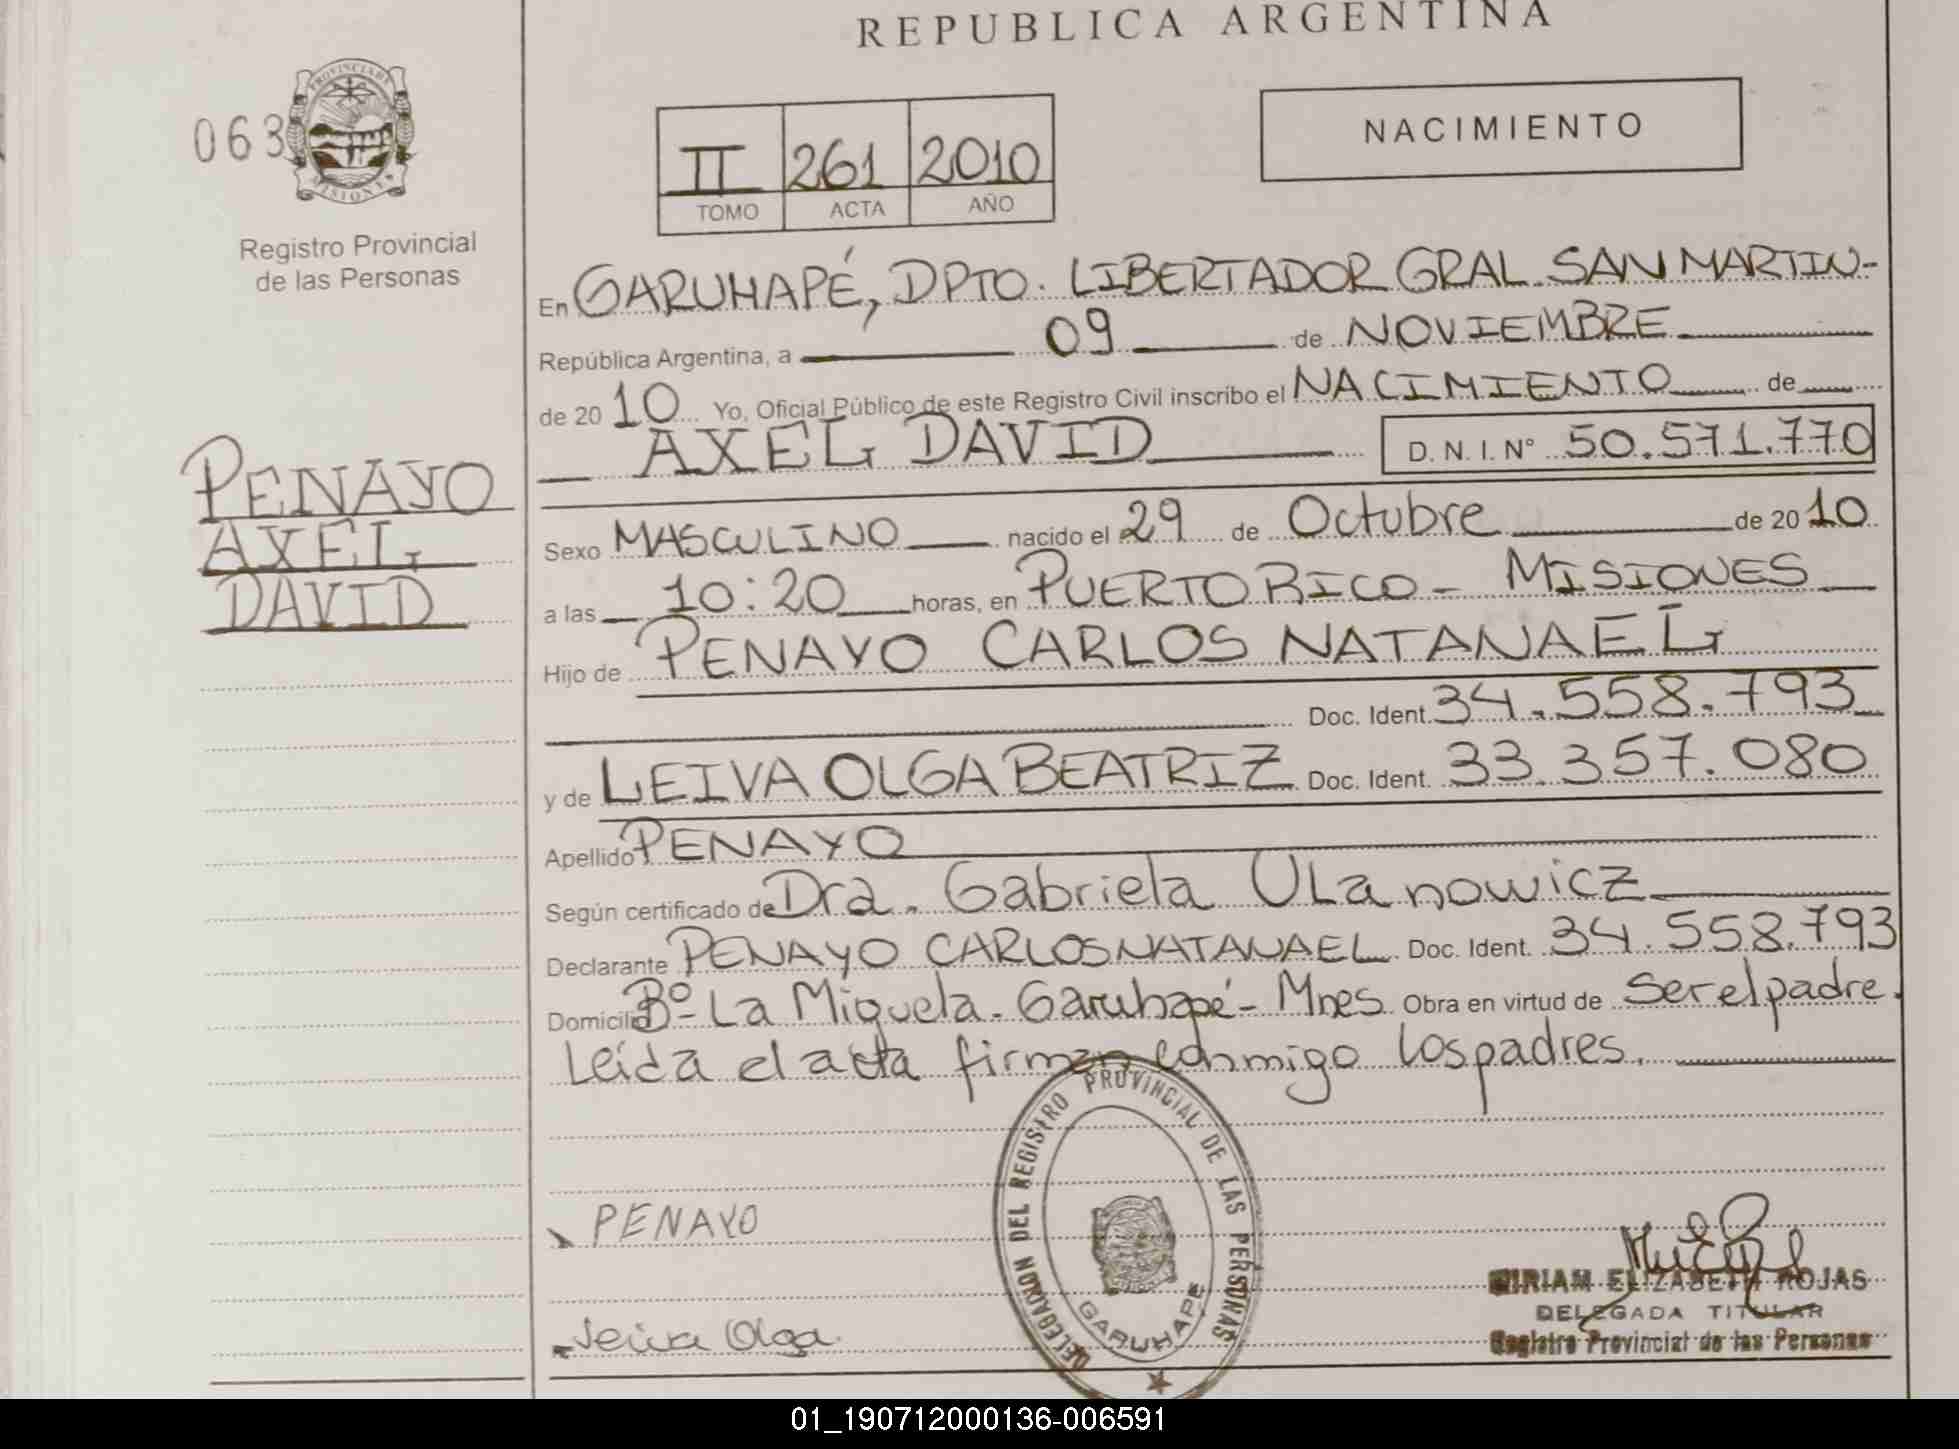 REPUBLICA ARGENTINA
063
PROVINCIA DE
MISIONES
Registro Provincial
de las Personas
II 261 2010
TOMO ACTA AÑO
NACIMIENTO
En GARUHAPÉ, DPTO. LIBERTADOR GRAL. SAN MARTIN-
República Argentina, a 09 de NOVIEMBRE
de 2010 Yo, Oficial Público de este Registro Civil inscribo el NACIMIENTO de
AXEL DAVID D. N. I. N° 50.571.770
PENAYO
AXEL
DAVID
Sexo MASCULINO nacido el 29 de Octubre de 2010
a las 10:20 horas, en PUERTO RICO - MISIONES
Hijo de PENAYO CARLOS NATANAEL
Doc. Ident. 34.558.793
y de LEIVA OLGA BEATRIZ Doc. Ident. 33.357.080
Apellido PENAYO
Según certificado de Dra. Gabriela ULanowicz
Declarante PENAYO CARLOS NATANAEL Doc. Ident. 34.558.793
Domicilio Bº- La Miguela. Garuhapé- Mnes Obra en virtud de ser el padre.
Leída el acta firman conmigo los padres.
DELEGACION DEL REGISTRO PROVINCIAL DE LAS PERSONAS
GARUHAPE
PENAYO
Leiva Olga.
MIRIAM ELIZABETH ROJAS
DELEGADA TITULAR
Registro Provincial de las Personas
01_190712000136-006591